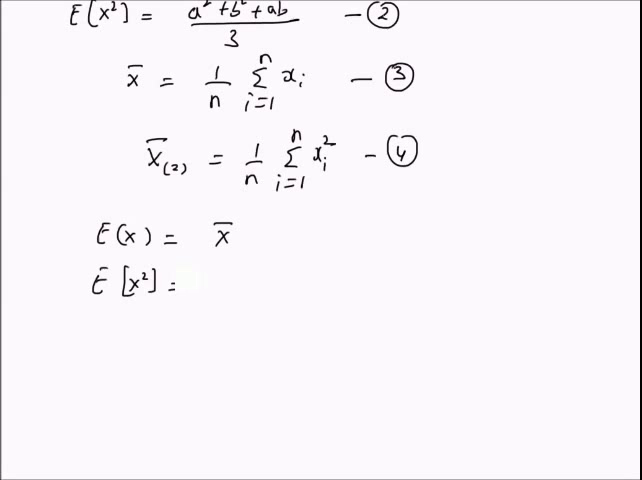 E[x²] = a² + b² + ab / 3 — ②
x̄ = 1/n Σ_{i=1}^{n} x_i — ③
X̄_{(2)} = 1/n Σ_{i=1}^{n} x_i² — ④
E(x) = x̄
E[x²] =